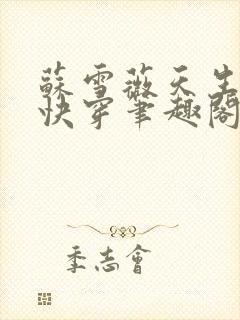 蘇雪薇天生
快穿筆趣閣
季志會